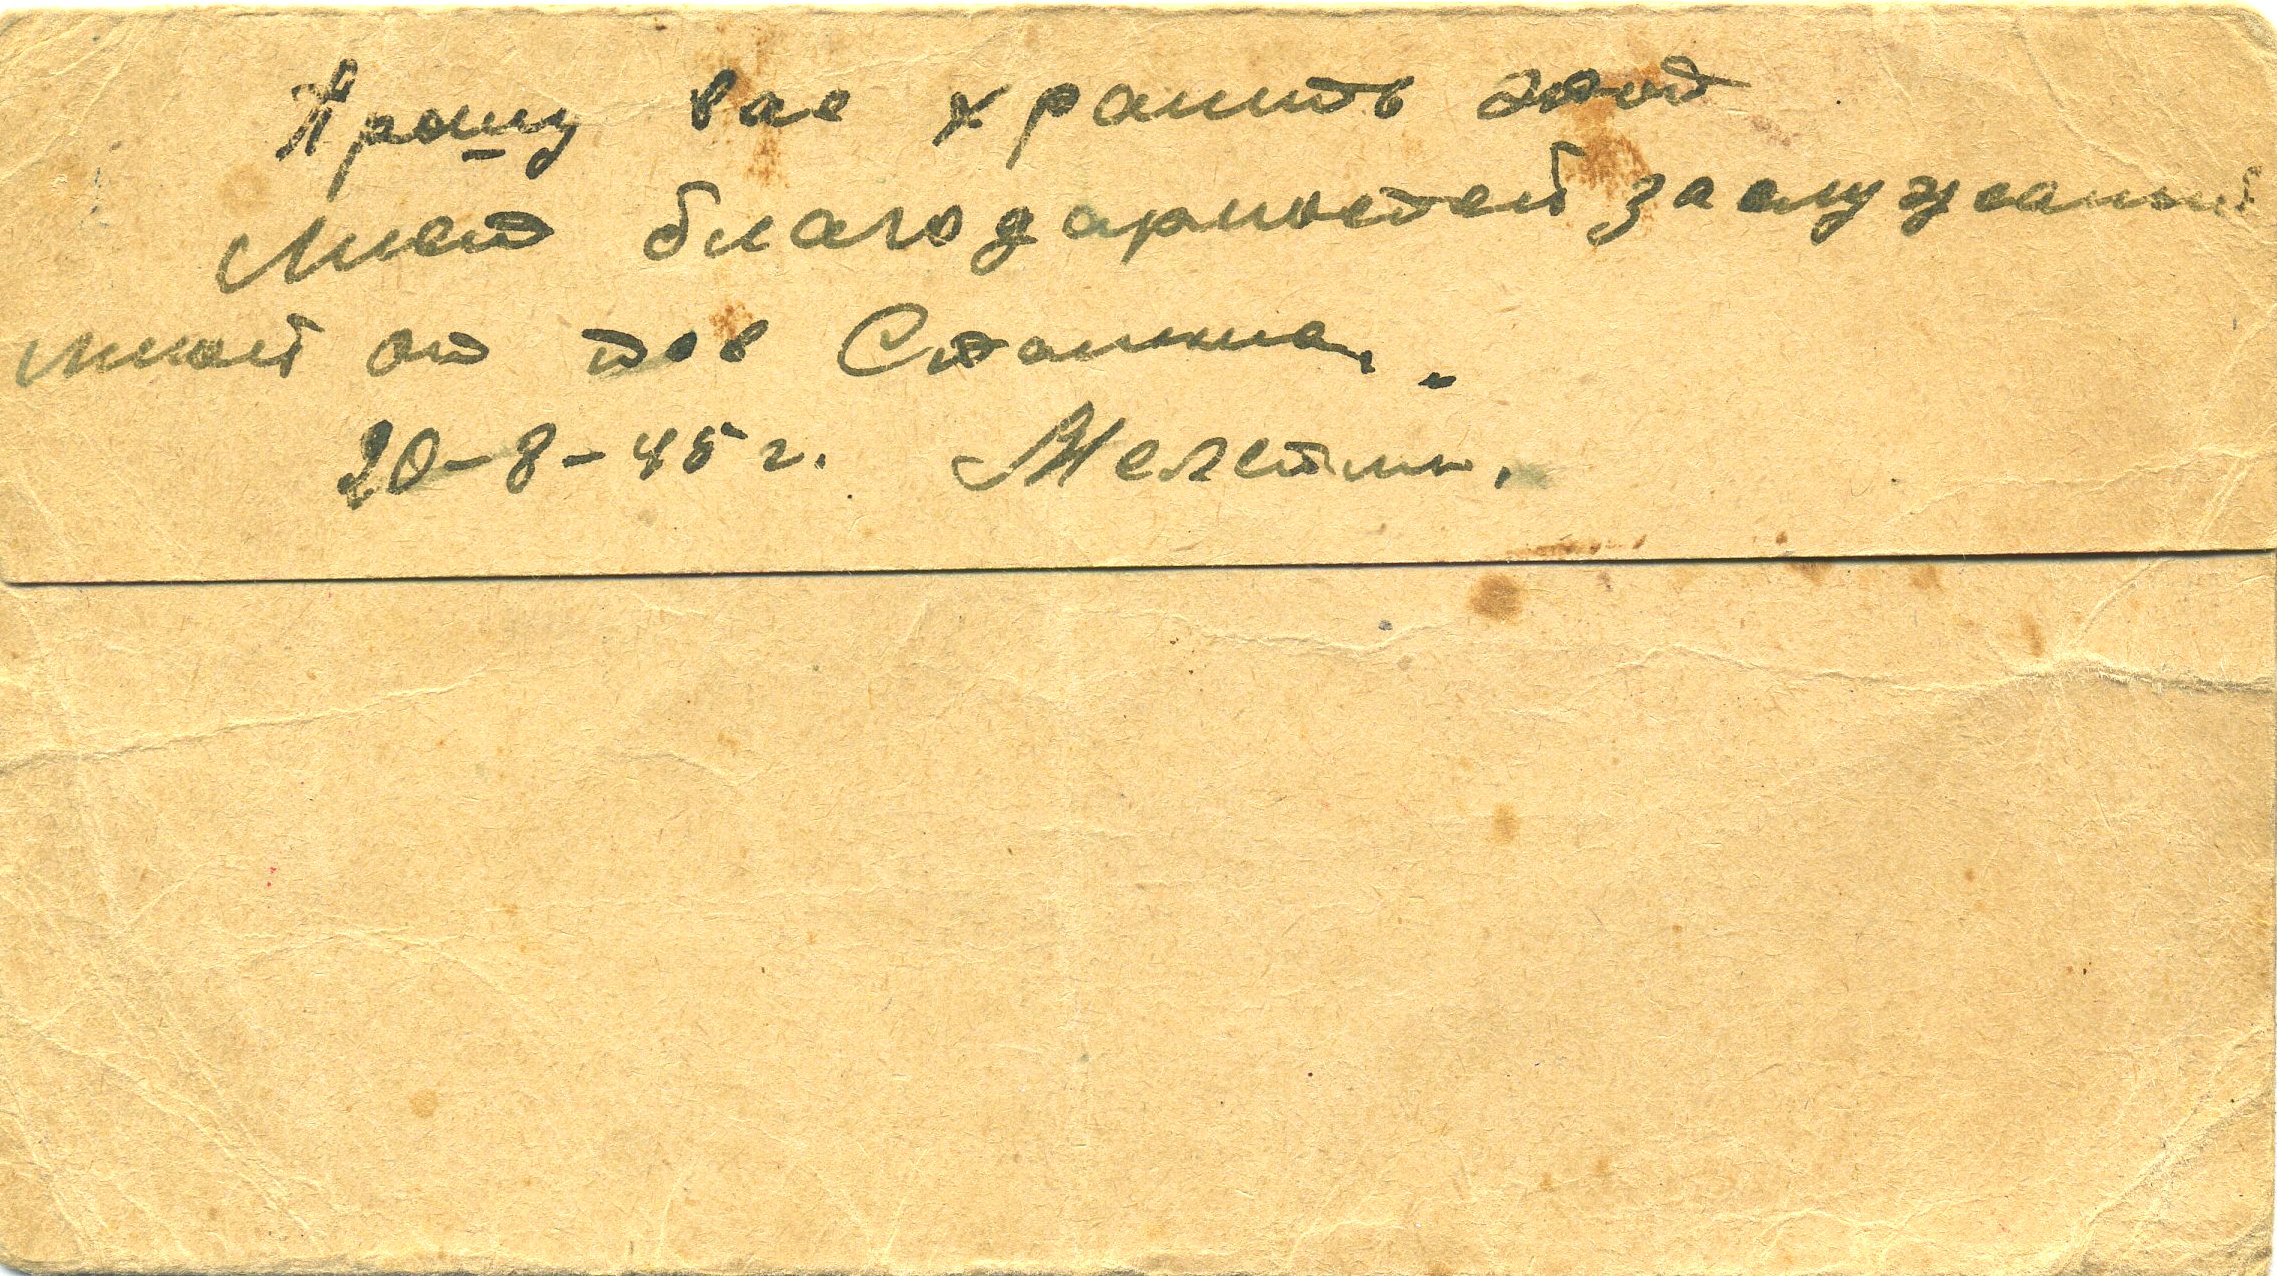 Прошу вас хранить этот
лист благодарностей заслужаный
мной от тов Сталина.
20-8-45 г.